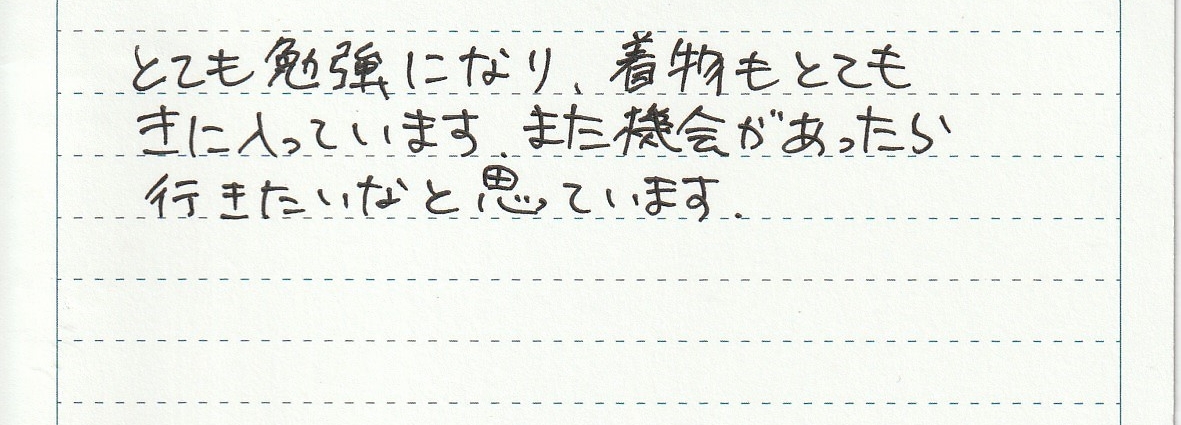 とても勉強になり、着物もとても
きに入っています.また機会があったら
行きたいなと思っています.